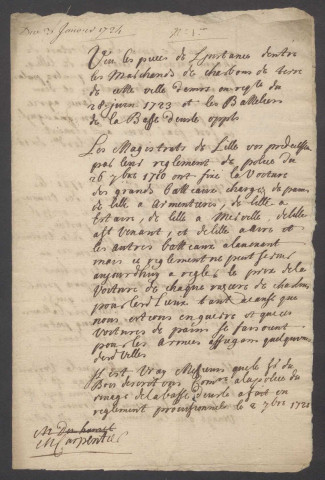 Du 31 Janvier 1724 N.° 1.er
Veu les pieces de l'Instance d'entre
les Marchands de charbons de terre
de cette ville demrs en reqte du
28 juin 1723 et les Batteliers
de la Basse deusle opposs
Les Magistrats de Lille vos predecessrs
par leur reglement de police du
26 7bre 1710 ont fixé la voiture
des grands batteaux chargez de grains
de lille a Armentieres, de lille a
Estaire, de lille a Merville, de lille
a St Venant, et de lille a Aire et
les autres batteaux a l'avenant
mais ce reglement ne peut servir
aujourdhuy a regler le prix de la
voiture de chaque rasiere de charbon
pour lesd. Lieux tant a cause que
nous estions en guerre et que ces
voitures de grains se faisoient
pour les armées
desd. villes
Il est vray Messieurs que le Sr du
Bon Commre a la police du
rivage de la basse deusle a fait un
reglement provisionnel le 2 7bre 1720
M Du hamel
M Carpentier